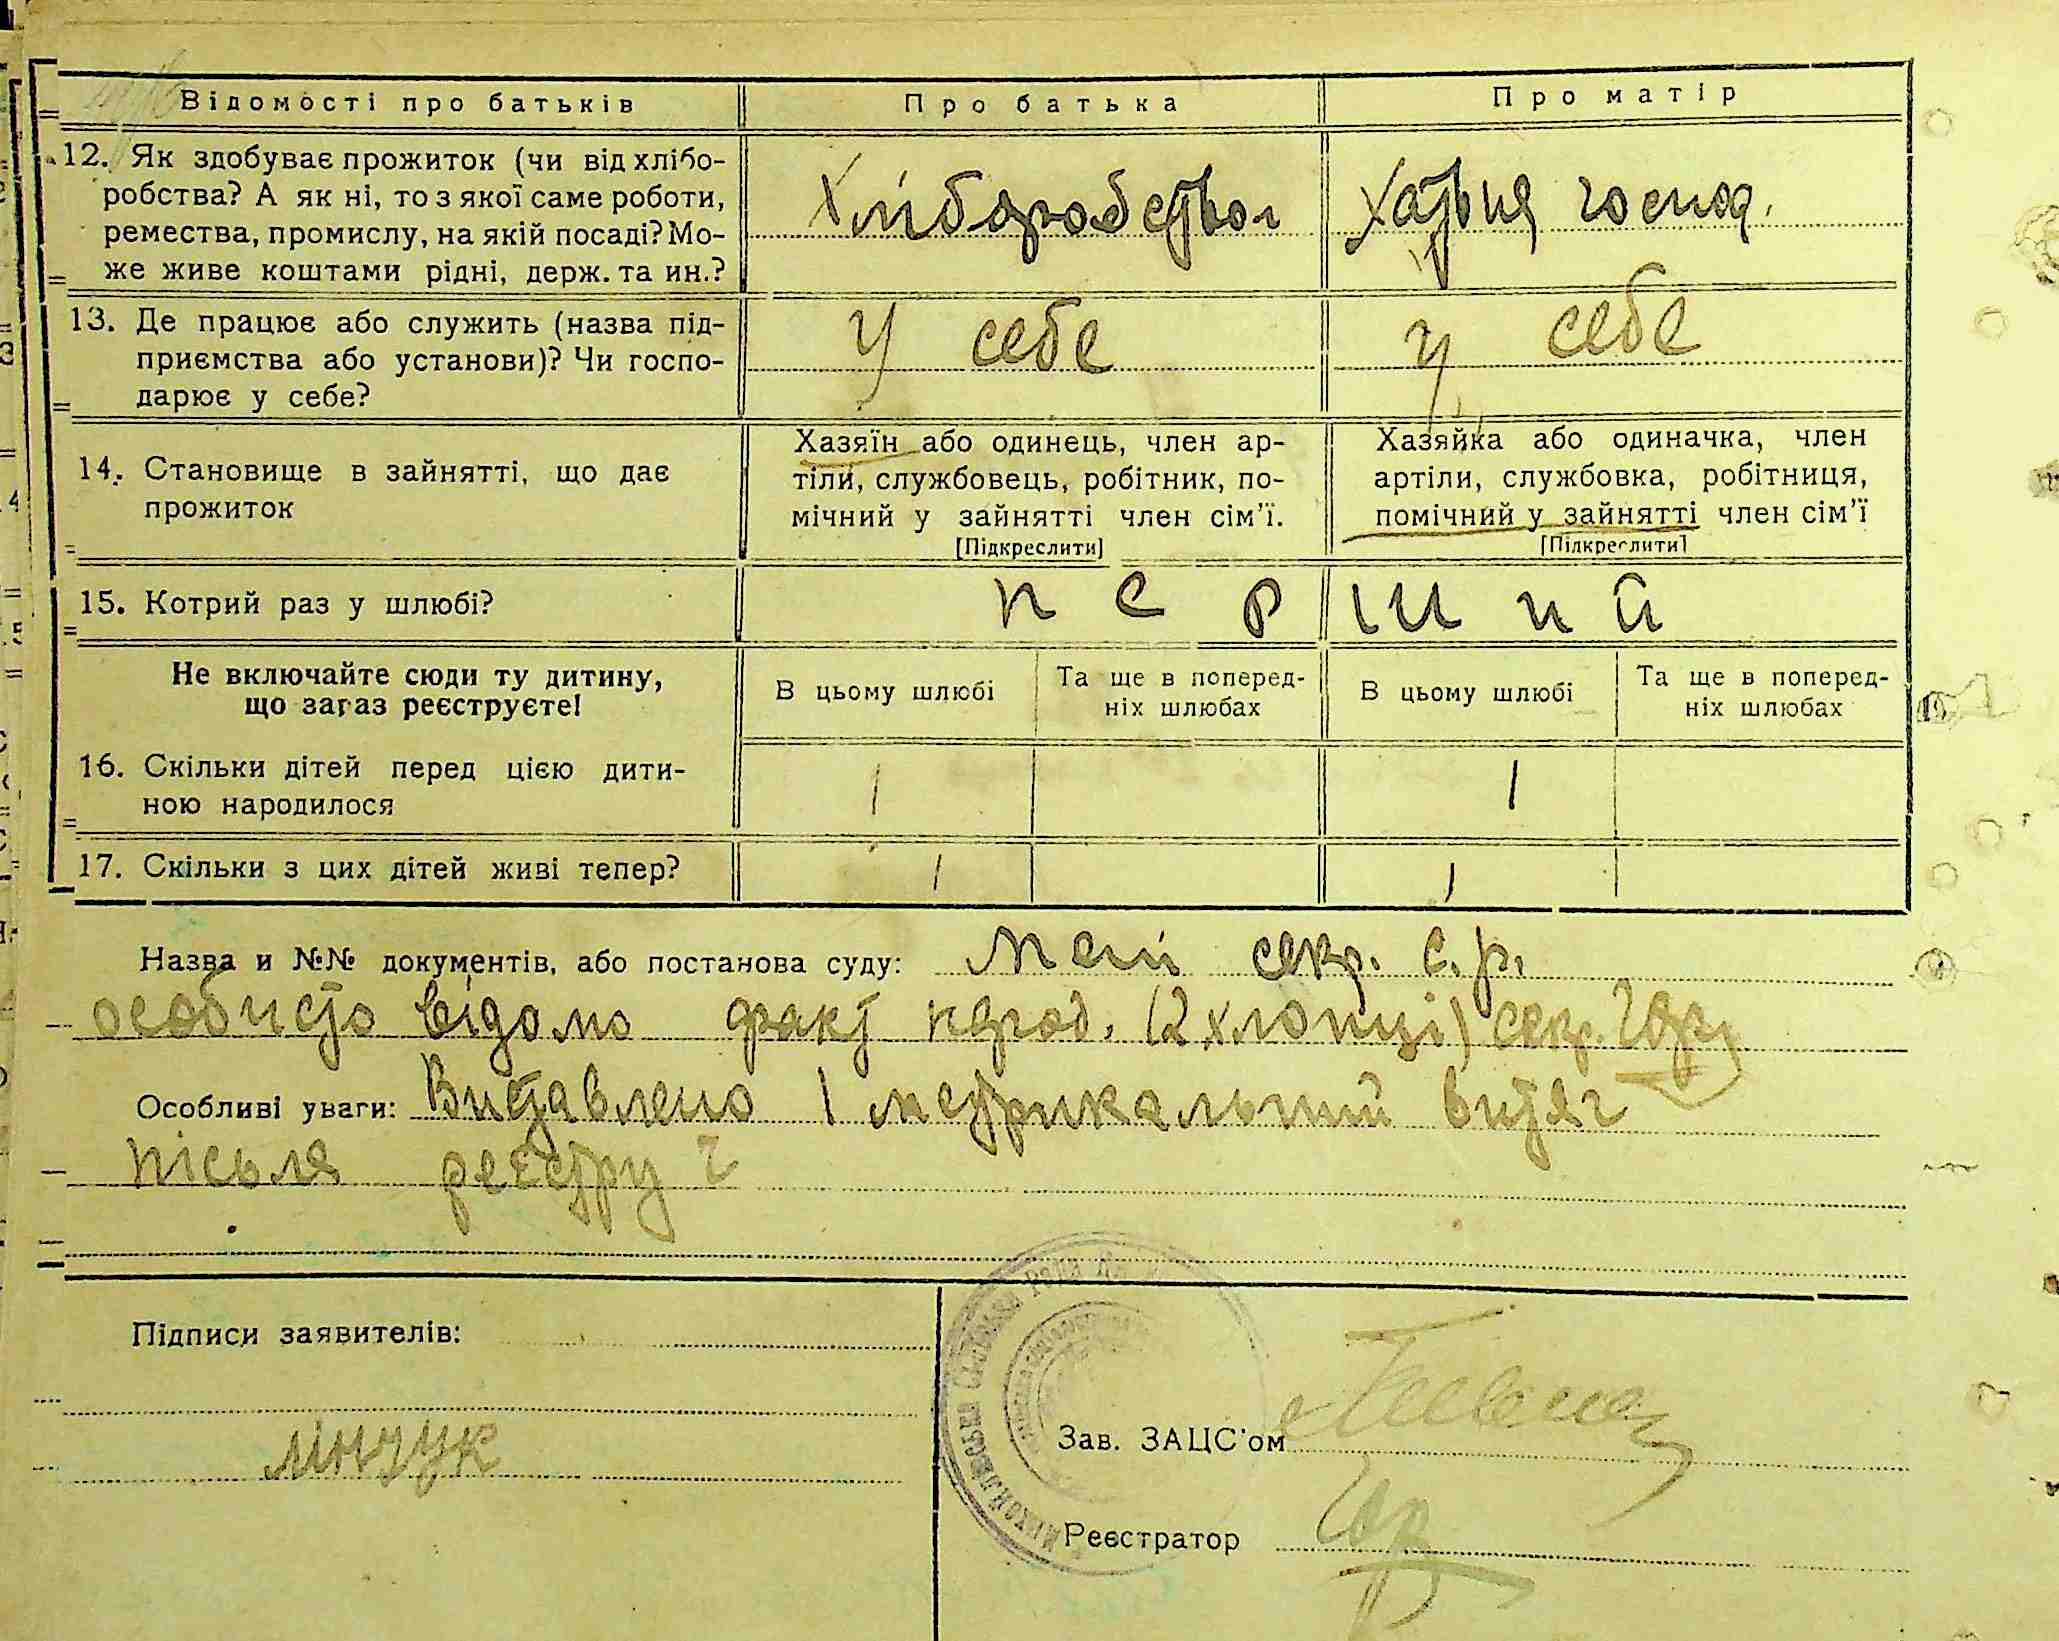 Відомості про батьків
Про батька
Про матір
12. Як здобуває прожиток (чи від хлібо-
робства? А як ні, то з якої саме роботи,
ремества, промислу, на якій посаді? Мо-
же живе коштами рідні, держ. та ин.?
Хліборобство
Хатня господ.
13. Де працює або служить (назва під-
приємства або установи)? Чи госпо-
дарює у себе?
У себе
у себе
14. Становище в зайнятті, що дає
прожиток
Хазяїн або одинець, член ар-
тіли, службовець, робітник, по-
мічний у зайнятті член сім'ї.
[Підкреслити]
Хазяйка або одиначка, член
артіли, службовка, робітниця,
помічний у зайнятті член сім'ї
[Підкреслити]
15. Котрий раз у шлюбі?
перший
Не включайте сюди ту дитину,
що зараз реєструєте!
В цьому шлюбі
Та ще в поперед-
ніх шлюбах
В цьому шлюбі
Та ще в поперед-
ніх шлюбах
16. Скільки дітей перед цією дити-
ною народилося
1
1
17. Скільки з цих дітей живі тепер?
1
1
Назва и №№ документів, або постанова суду: Мені секр. с.р.
особисто відомо факт народ. (2 хлопці) секр.
Особливі уваги: Виставлено 1 метрикальний витяг
після реєстру
Підписи заявителів:
Лінчук
МИХАЙЛІВСЬКА СІЛЬСЬКА РАДА
Зав. ЗАЦС'ом
Реєстратор